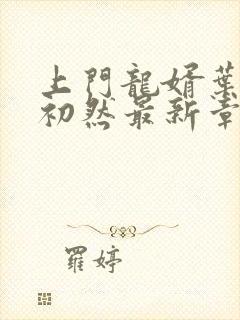 上門龍婿葉
初然最新章
羅婷